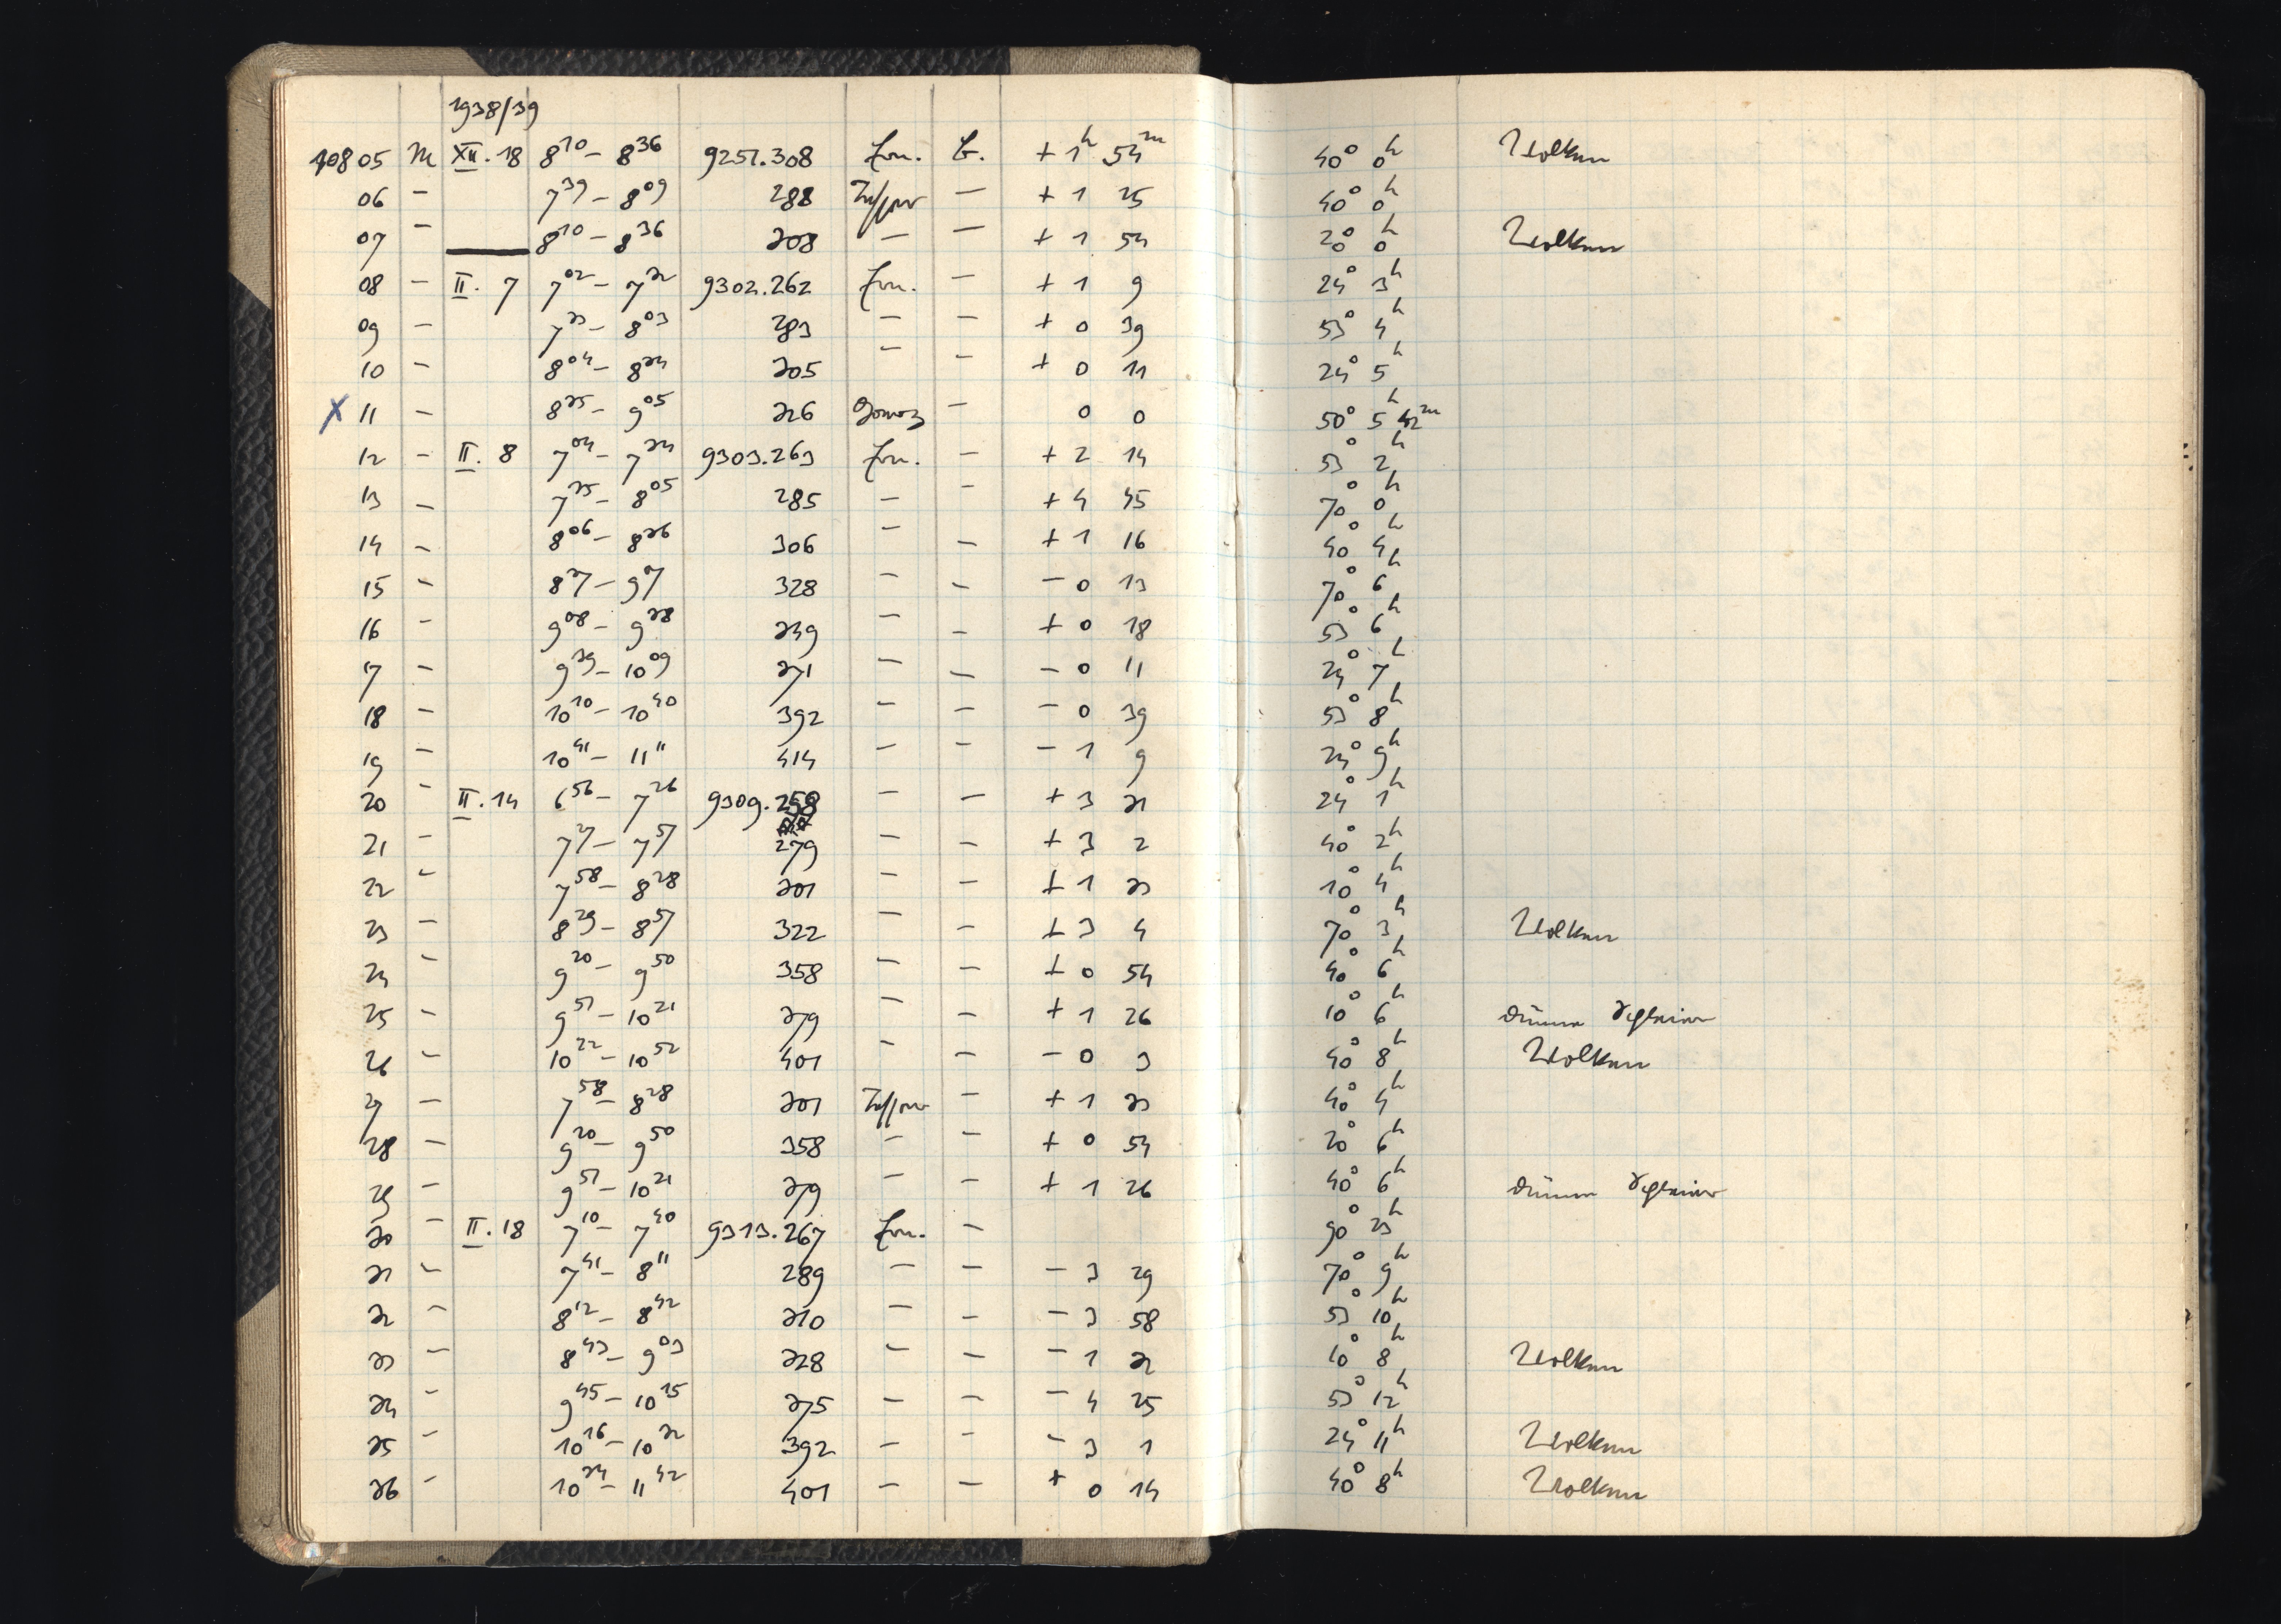 1938/39
10805 M XII. 18 8¹⁰ – 8³⁶ 9251.308 Ern. B. + 1ʰ 54ᵐ 40° 0ʰ Wolken
06 – 7³⁹ – 8⁰⁹ 288 – + 1 25 40° 0ʰ
07 – 8¹⁰ – 8³⁶ 308 – – + 1 54 20° 0ʰ Wolken
08 – II. 7 7⁰² – 7³² 9302.262 Ern. – + 1 9 24° 3ʰ
09 – 7³³ – 8⁰³ 283 – – + 0 39 53° 4ʰ
10 – 8⁰⁴ – 8³⁴ 305 – – + 0 11 24° 5ʰ
X 11 – 8³⁵ – 9⁰⁵ 326 – 0 0 50° 5ʰ 42ᵐ
12 – II. 8 7⁰⁴ – 7³⁴ 9303.263 Ern. – + 2 14 53° 2ʰ
13 – 7³⁵ – 8⁰⁵ 285 – – + 4 45 70° 0ʰ
14 – 8⁰⁶ – 8³⁶ 306 – – + 1 16 40° 4ʰ
15 – 8³⁷ – 9⁷ 328 – – – 0 13 70° 6ʰ
16 – 9⁰⁸ – 9³⁸ 349 – – + 0 18 53° 6ʰ
17 – 9³⁹ – 10⁰⁹ 371 – – – 0 11 24° 7ʰ
18 – 10¹⁰ – 10⁴⁰ 392 – – – 0 39 53° 8ʰ
19 – 10⁴¹ – 11¹¹ 414 – – – 1 9 24° 9ʰ
20 – II. 14 6⁵⁶ – 7²⁶ 9309.258 – – + 3 31 24° 1ʰ
21 – 7²⁷ – 7⁵⁷ 279 – – + 3 2 40° 2ʰ
22 – 7⁵⁸ – 8²⁸ 301 – – + 1 33 10° 4ʰ
23 – 8²⁹ – 8⁵⁷ 322 – – + 3 4 70° 3ʰ Wolken
24 – 9²⁰ – 9⁵⁰ 358 – – + 0 54 40° 6ʰ
25 – 9⁵¹ – 10²¹ 379 – – + 1 26 10° 6ʰ dünne Schleier
26 – 10²² – 10⁵² 401 – – – 0 3 40° 8ʰ Wolken
27 – 7⁵⁸ – 8²⁸ 301 – + 1 33 40° 4ʰ
28 – 9²⁰ – 9⁵⁰ 358 – – + 0 54 20° 6ʰ
29 – 9⁵¹ – 10²¹ 379 – – + 1 26 40° 6ʰ dünne Schleier
30 – II. 18 7¹⁰ – 7⁴⁰ 9313.267 Ern. – 90° 23ʰ
31 – 7⁴¹ – 8¹¹ 289 – – – 3 29 70° 9ʰ
32 – 8¹² – 8⁴² 310 – – – 3 58 53° 10ʰ
33 – 8⁴³ – 9⁰³ 328 – – – 1 32 10° 8ʰ Wolken
34 – 9⁴⁵ – 10¹⁵ 375 – – – 4 25 53° 12ʰ
35 – 10¹⁶ – 10³² 392 – – – 3 1 24° 11ʰ Wolken
36 – 10³⁴ – 11⁴² 401 – – + 0 14 40° 8ʰ Wolken